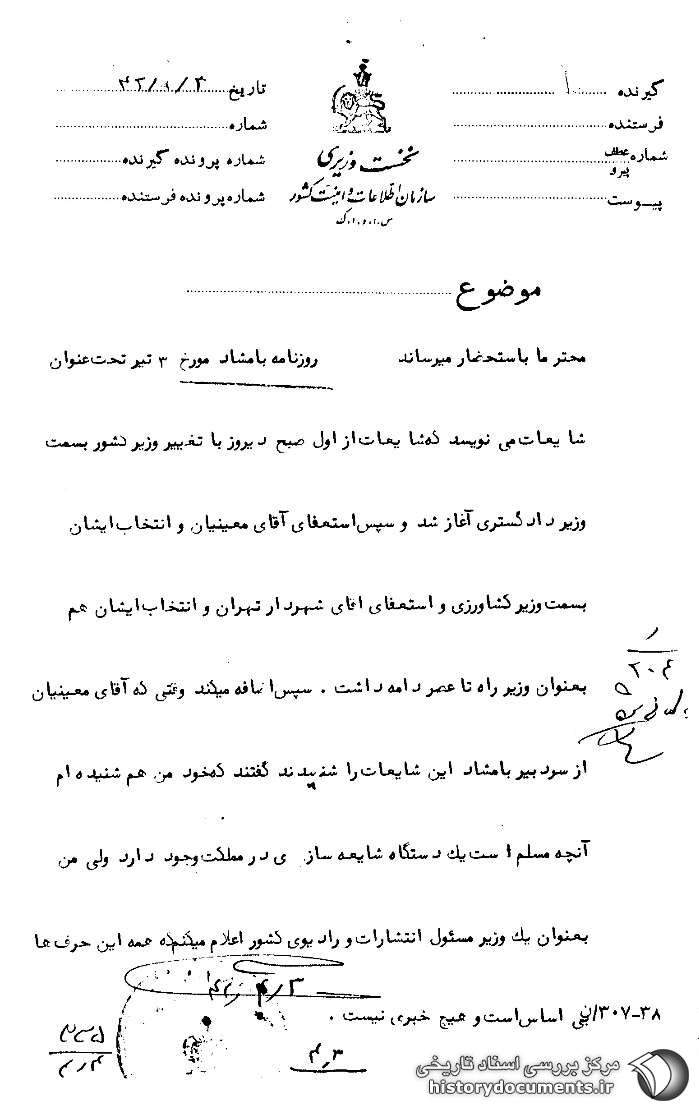 گیرنده ۱
تاریخ
فرستنده
شماره
شماره عطف پیرو
شماره پرونده گیرنده
پیوست
شماره پرونده فرستنده
نخست وزیری
سازمان اطلاعات و امنیت کشور
س.ا.و.ا.ک
موضوع
محترما باستحضار میرساند روزنامه بامشاد مورخ ۳ تیر تحت عنوان
شایعات می نویسد که شایعات از اول صبح دیروز با تغییر وزیر کشور بسمت
وزیر دادگستری آغاز شد و سپس استعفای آقای معینیان و انتخاب ایشان
بسمت وزیر کشاورزی و استعفای اقای شهردار تهران و انتخاب ایشان هم
بعنوان وزیر راه تا عصر دامه داشت . سپس اضافه میکند وقتی که آقای معینیان
از سردبیر بامشاد این شایعات را شنیدند گفتند که خود من هم شنیده ام
آنچه مسلم است یك دستگاه شایعه سازی در مملکت وجود دارد ولی من
بعنوان یك وزیر مسئول انتشارات و رادیوی کشور اعلام میکنم که همه این حرف ها
بی اساس است و هیچ خبری نیست .
۳۰۷-۳۸
۴۲/۴/۳
۴/۳
۲۰۴
مرکز بررسی اسناد تاریخی
historydocuments.ir